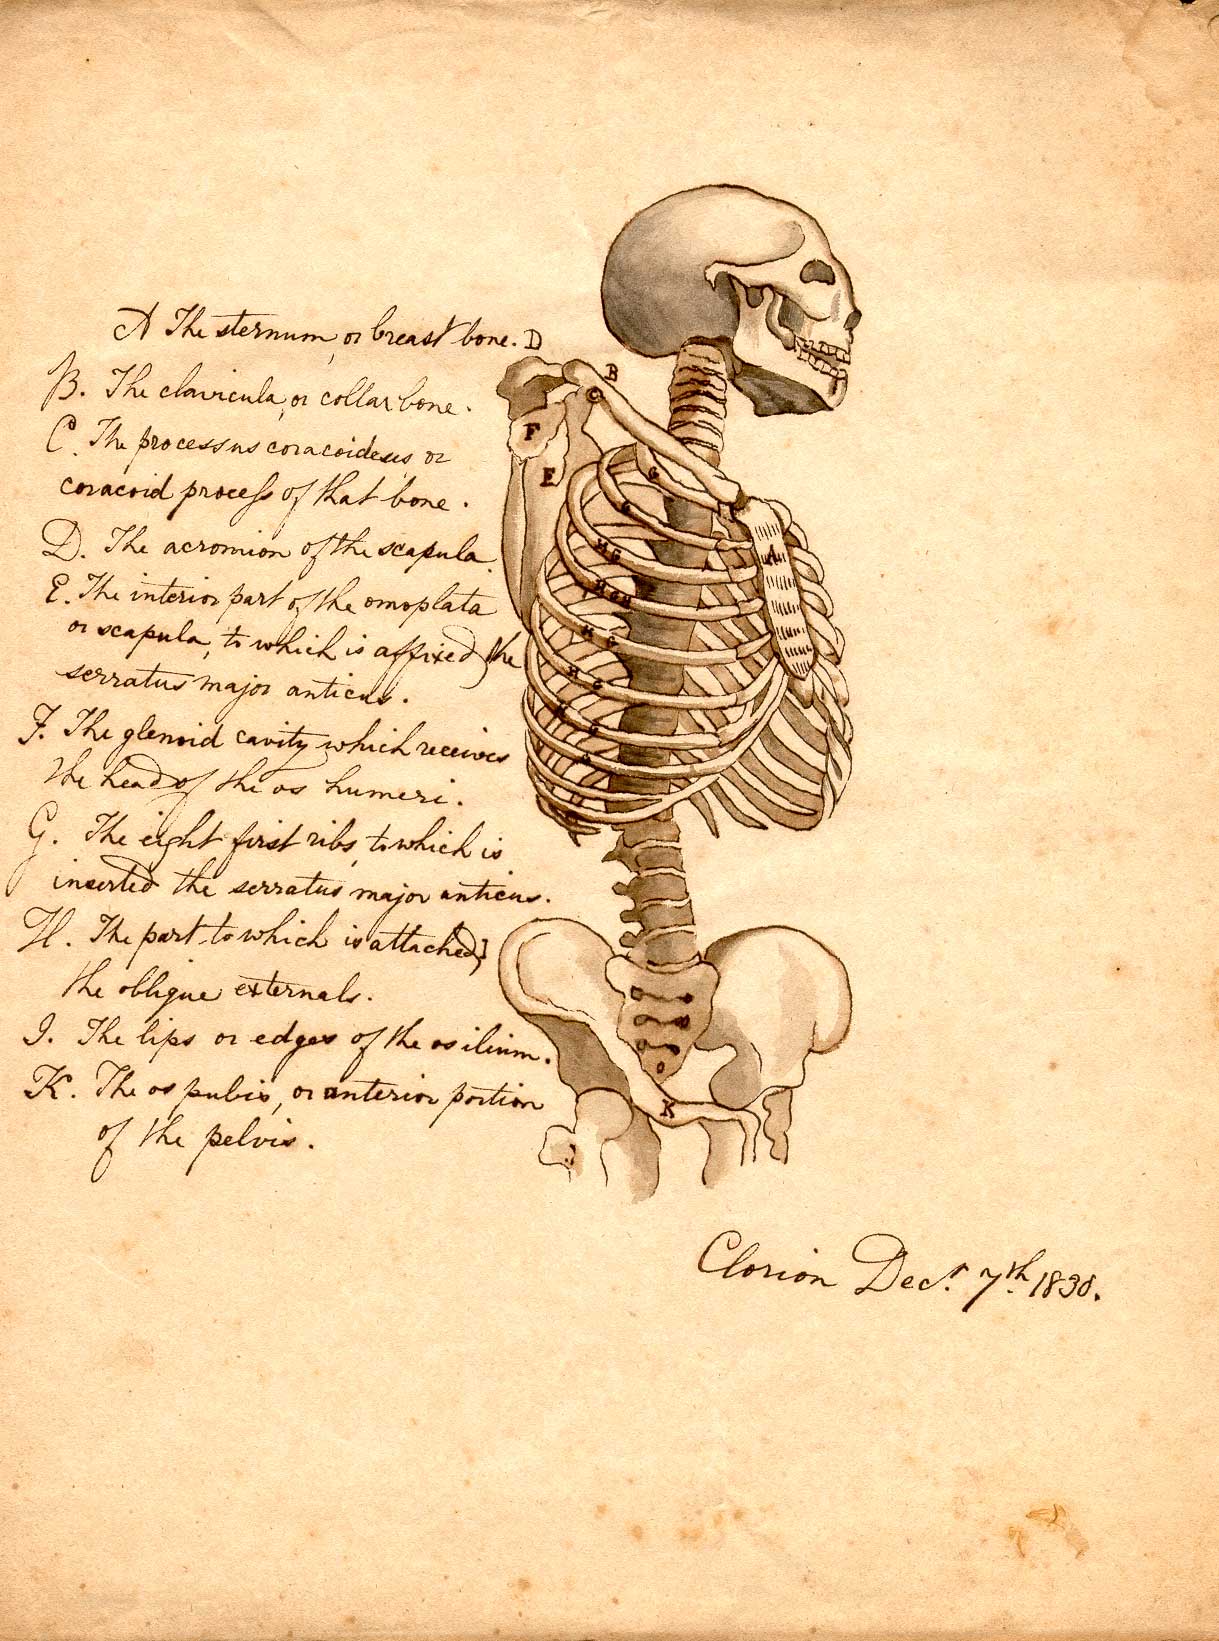 A The sternum, or breast bone.
B. The clavicula, or collar bone.
C. The processus coracoideus or
coracoid process of that bone.
D. The acromion of the scapula.
E. The interior part of the omoplata
or scapula, to which is affixed the
serratus major anticus.
F. The glenoid cavity which receives
the head of the os humeri.
G. The eight first ribs, to which is
inserted the serratus major anticus.
H. The part to which is attached
the oblique externals.
I. The lips or edges of the os ilium.
K. The os pubis, or anterior portion
of the pelvis.
D
B
F
E
G
G
H G
H G H
H G
H G
H G
A
K
Clorion Decr. 7th. 1830.